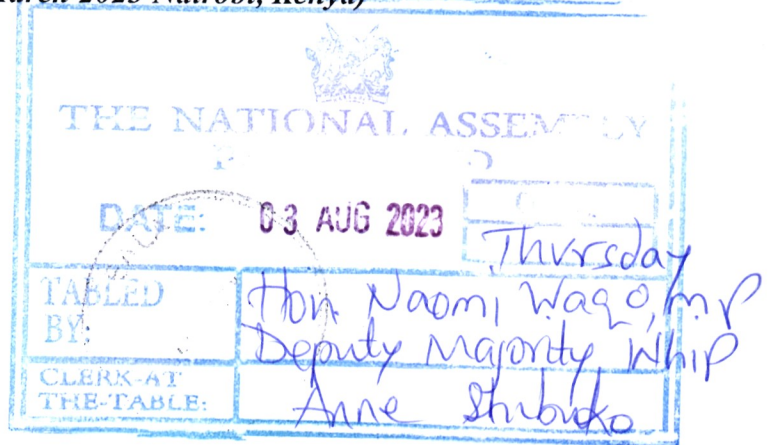 2023 Nairobi, Kenya)
THE NATIONAL ASSEMBLY
DATE: 03 AUG 2023
Thursday
TABLED BY: Hon. Naomi Waqo, MP
Deputy Majority Whip
CLERK-AT
THE-TABLE: Anne